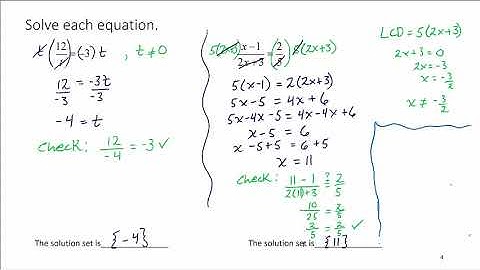 Solve each equation.
t(12/t)=(-3)t , t≠0
12/-3 = -3t/-3
-4 = t
check: 12/-4 = -3 ✓
The solution set is {-4}
5(2x+3) x-1/2x+3 = 2/5 5(2x+3)
5(x-1) = 2(2x+3)
5x-5 = 4x+6
5x-4x-5 = 4x-4x+6
x-5 = 6
x-5+5 = 6+5
x = 11
Check:
11-1/2(11)+3 ?= 2/5
10/25 = 2/5
2/5 = 2/5 ✓
The solution set is {11}
LCD = 5(2x+3)
2x+3=0
2x=-3
x=-3/2
x≠-3/2
4